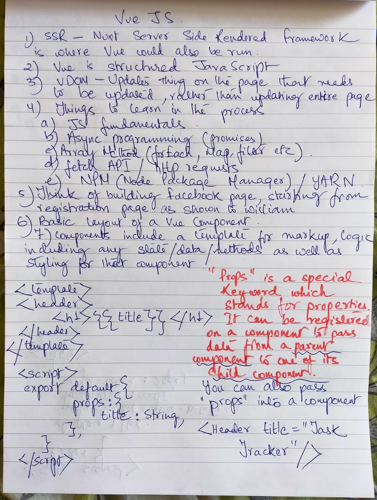 Vue JS
1) SSR - Nuxt Server Side Rendered framework
is where Vue could also be run
2) Vue is structured JavaScript
3) VDOM - Updates thing on the page that needs
to be updated, rather than updating entire page
4) Things to learn in the process
a) JS fundamentals
b) Async programming (promises)
c) Array Method (forEach, Map, filter etc).
d) fetch API / HTTP requests
e) NPM (Node Package Manager) / YARN
5) Think of building Facebook page, starting from
registration page as shown to william
6) Basic layout of a Vue Component
7) Components include a template for markup, logic
including any state/data/methods as well as
styling for that component
<template>
<header>
<h1>{{title}}</h1>
</header>
</template>
<script>
export default {
props: {
title: String,
},
}
</script>
"Props" is a special
keyword, which
stands for properties.
It can be registered
on a component to pass
data from a parent
component to one of its
child component.
You can also pass
"props" into a component
<Header title="Task
Tracker"/>